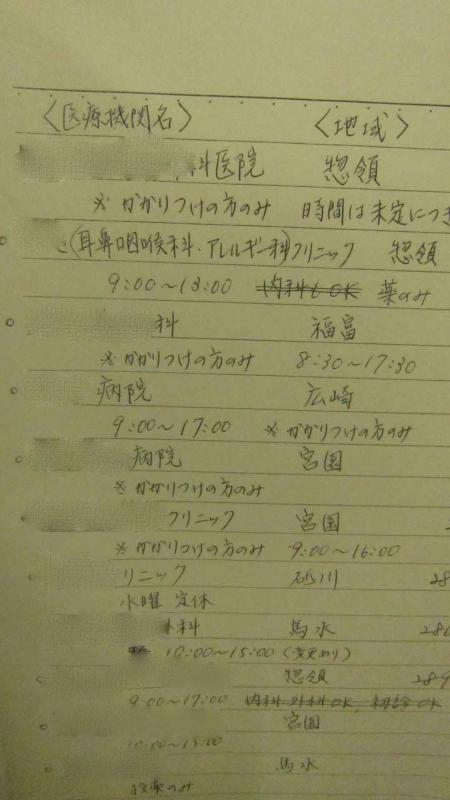 〈医療機関名〉 〈地域〉
科医院 惣領
※かかりつけの方のみ 時間は未定につき
(耳鼻咽喉科・アレルギー科)クリニック 惣領
9:00~13:00 内科もOK 薬のみ
科 福富
※かかりつけの方のみ 8:30~17:30
病院 広崎
9:00~17:00 ※かかりつけの方のみ
病院 宮園
※かかりつけの方のみ
クリニック 宮園
※かかりつけの方のみ 9:00~16:00
リニック 砥川 28
水曜 定休
外科 馬水 286
10:00~15:00(変更あり)
惣領 289
9:00~17:00 内科 外科OK、初診OK
宮園
:00~15:00
馬水
投薬のみ